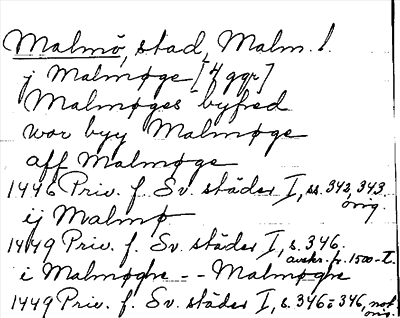 Malmö, stad, Malm. l.
j Malmøge [4 ggr]
Malmøges byfred
wor byy Malmøge
aff Malmøge
1446 Priv. f. Sv. städer I, ss. 342, 343
orig.
ij Malmø
1449 Priv. f. Sv. städer I, s. 346.
avskr. fr. 1500-t.
i Malmøghe -- Malmøghe
1449 Priv. f. Sv. städer I, s. 346 o 346, not
orig.